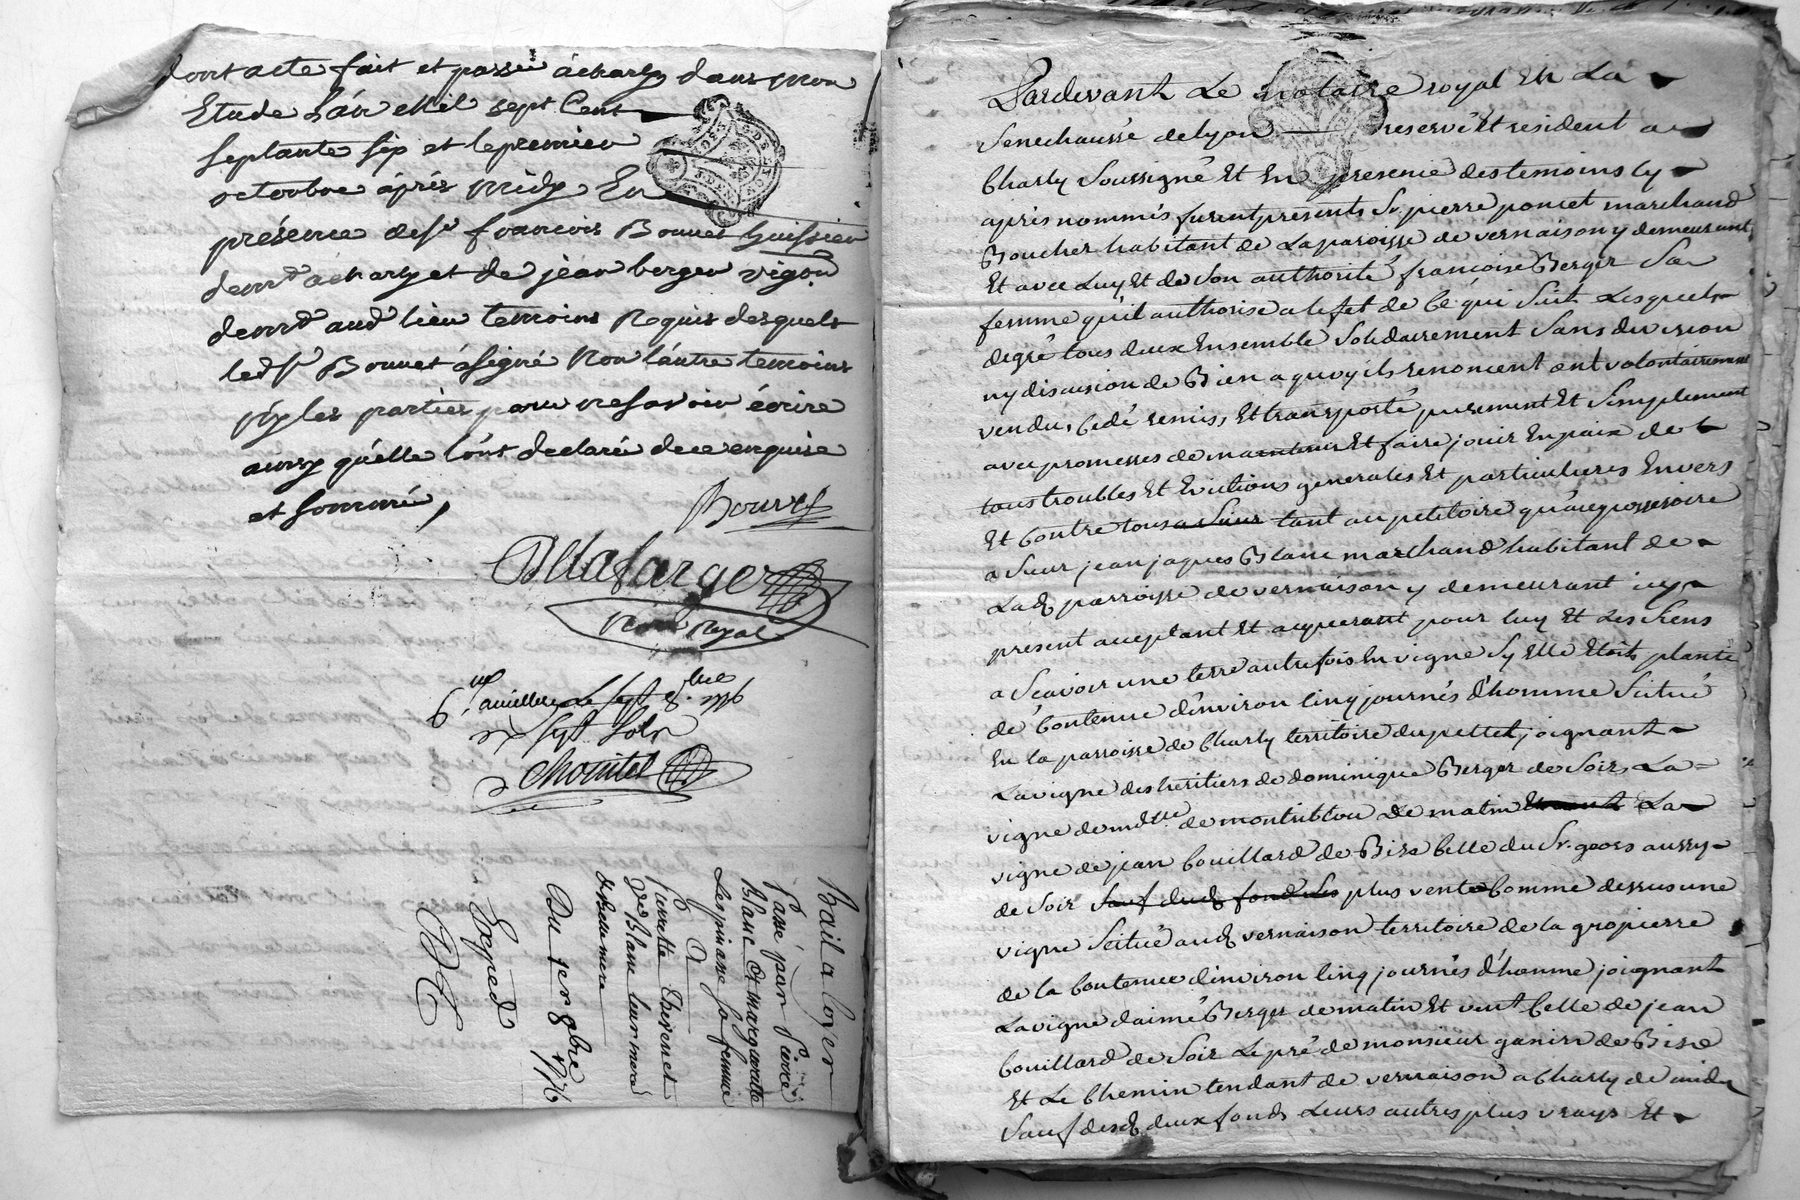 dont acte fait et passé à charly dans mon
Etude L'an Mil sept Cent
septante six et le premier
octoobre áprés midy En
présence de sr francois Bonnet huissier
demt à charly et de jean berger vigon
demt aud lieu temoins Requis desquels
led sr Bonnet à signé Non l'autre temoins
ny les parties pour ne savoir écrire
ainsy qu'elle l'ont declaré de ce enquise
et sommé,
Bonnet
Dellafarge
Nore Royal
le sept 8bre 1776
sept sols
Bail a loyer
Passé par Pierre
Blanc & marguerite
Lespinasse sa femme
A
Pierrette Thevenet
Ve Blanc leur mere
Du 1er 8bre 1776
Expred
Pardevant Le notaire royal En La
Senechaussé de lyon reservé Et resident a
Charly Soussigné Et En presence des temoins Cy
apris nommés furent presents Sr. pierre poncet marchand
Boucher habitant de La paroisse de vernaison y demeurant
Et avec Luy Et de Son authorité francoise Berger Sa
femme qu'il authorise a l'efet de Cé qui Suit Lesquels
degré tous deux Ensemble Solidairement Sans division
ny discusion de Bien a quoy ils renoncent ont volontairement
vendu, Cedé remis, Et transporté purement Et Simplement
avec promesses de maintenir Et faire jouir En paix de
tous troubles Et Evictions generales Et particulieres Envers
Et Contre tous a Sieur tant au petitoire qu'au possesoire
a Sieur jean jaques Blanc marchand habitant de
Lad parroisse de vernaison y demeurant icy
present acceptant Et aquerant pour luy Et Les Siens
a Scavoir une terre autrefois En vigne Sy Elle Etoit planté
dé Contenue d'environ Cinq journés d'homme Scitué
En la parroisse de Charly territoire du pettet joignant
La vigne des heritiers de dominique Berger de Soir, La
vigne de mdlle de montriblou de matin La
vigne de jean Couillard de Bize Celle du Sr. geors aussy
de Soir Sauf dud fond Les plus vente Comme dessus une
vigne Scitué aud vernaison territoire de la gropierre
de la Contenue d'environ Cinq journés d'homme joignant
La vigne d'aimé Berger de matin Et vent Celle de jean
Couillard de Soir Le pré de monsieur ganin de Bise
Et Le Chemin tendant de vernaison a Charly de midy
Sauf desd deux fonds Leurs autres plus vrays Et